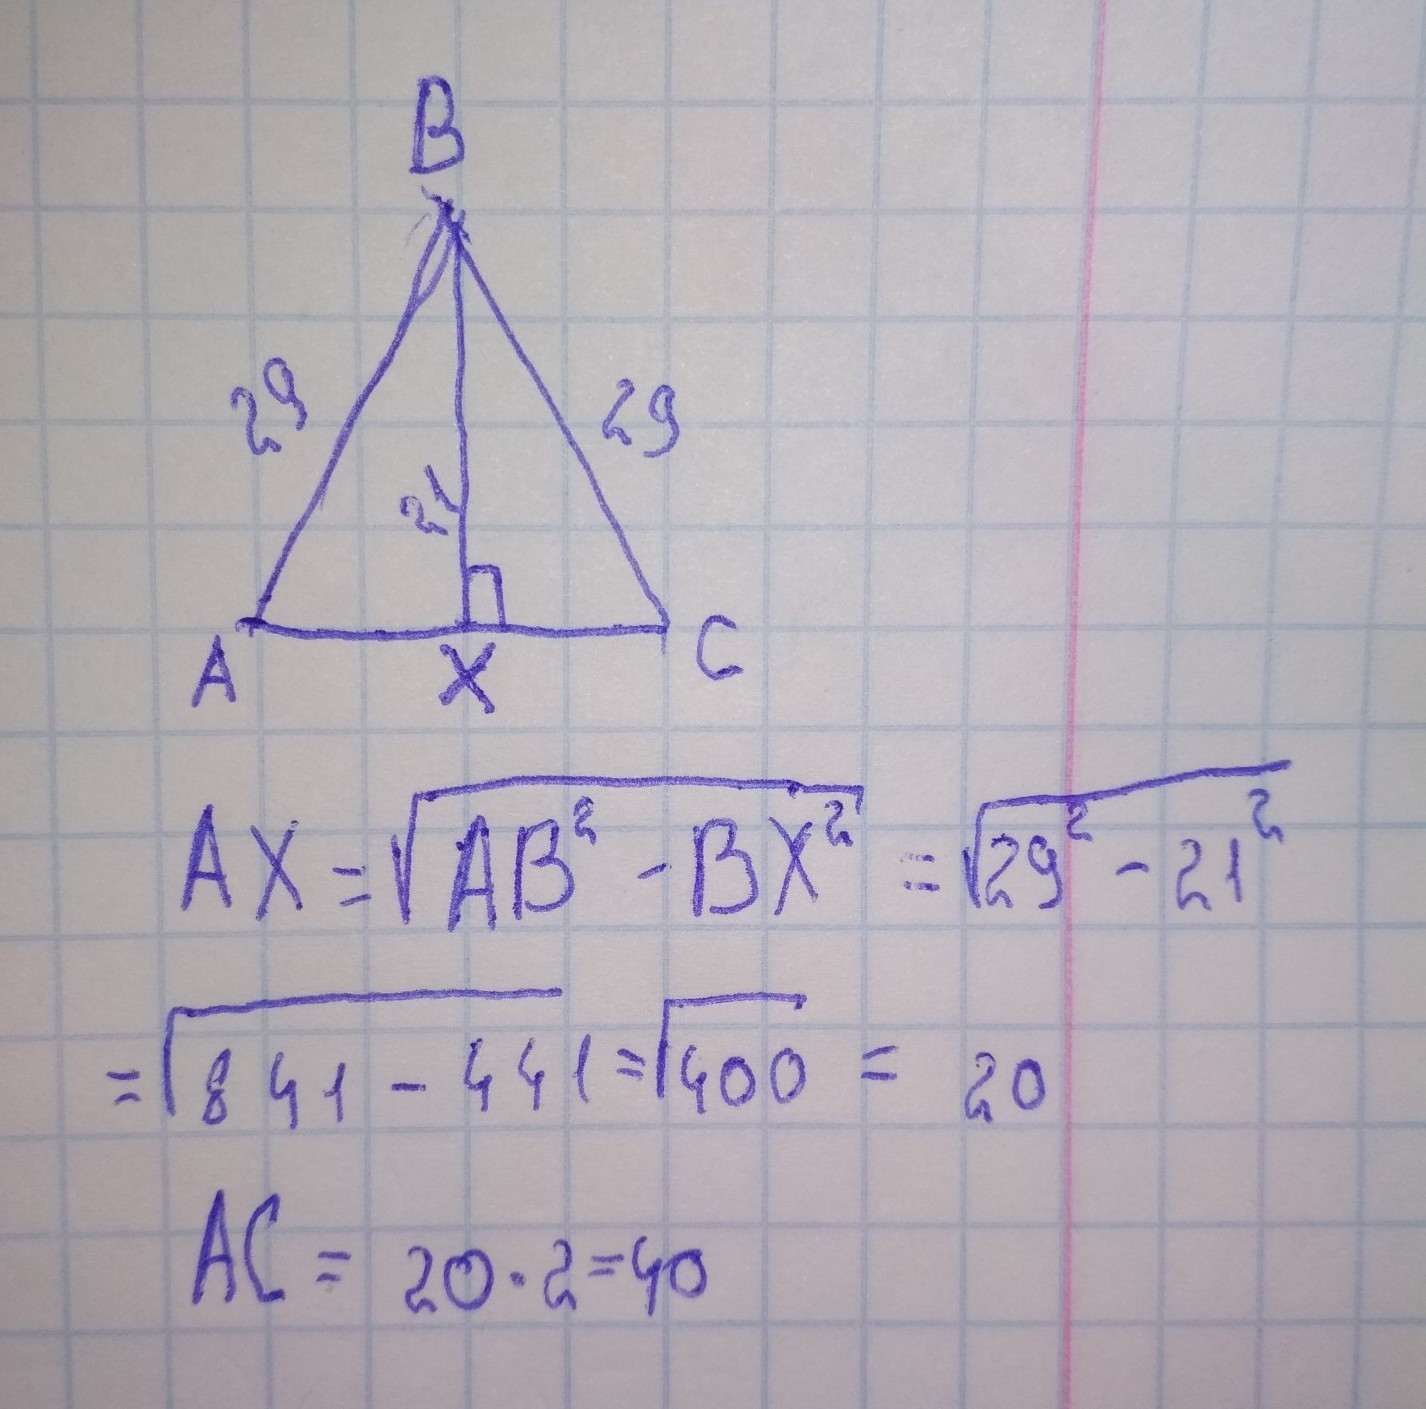 B
29
29
21
A
X
C
AX = √AB² - BX² = √29² - 21²
= √841 - 441 = √400 = 20
AC = 20 · 2 = 40